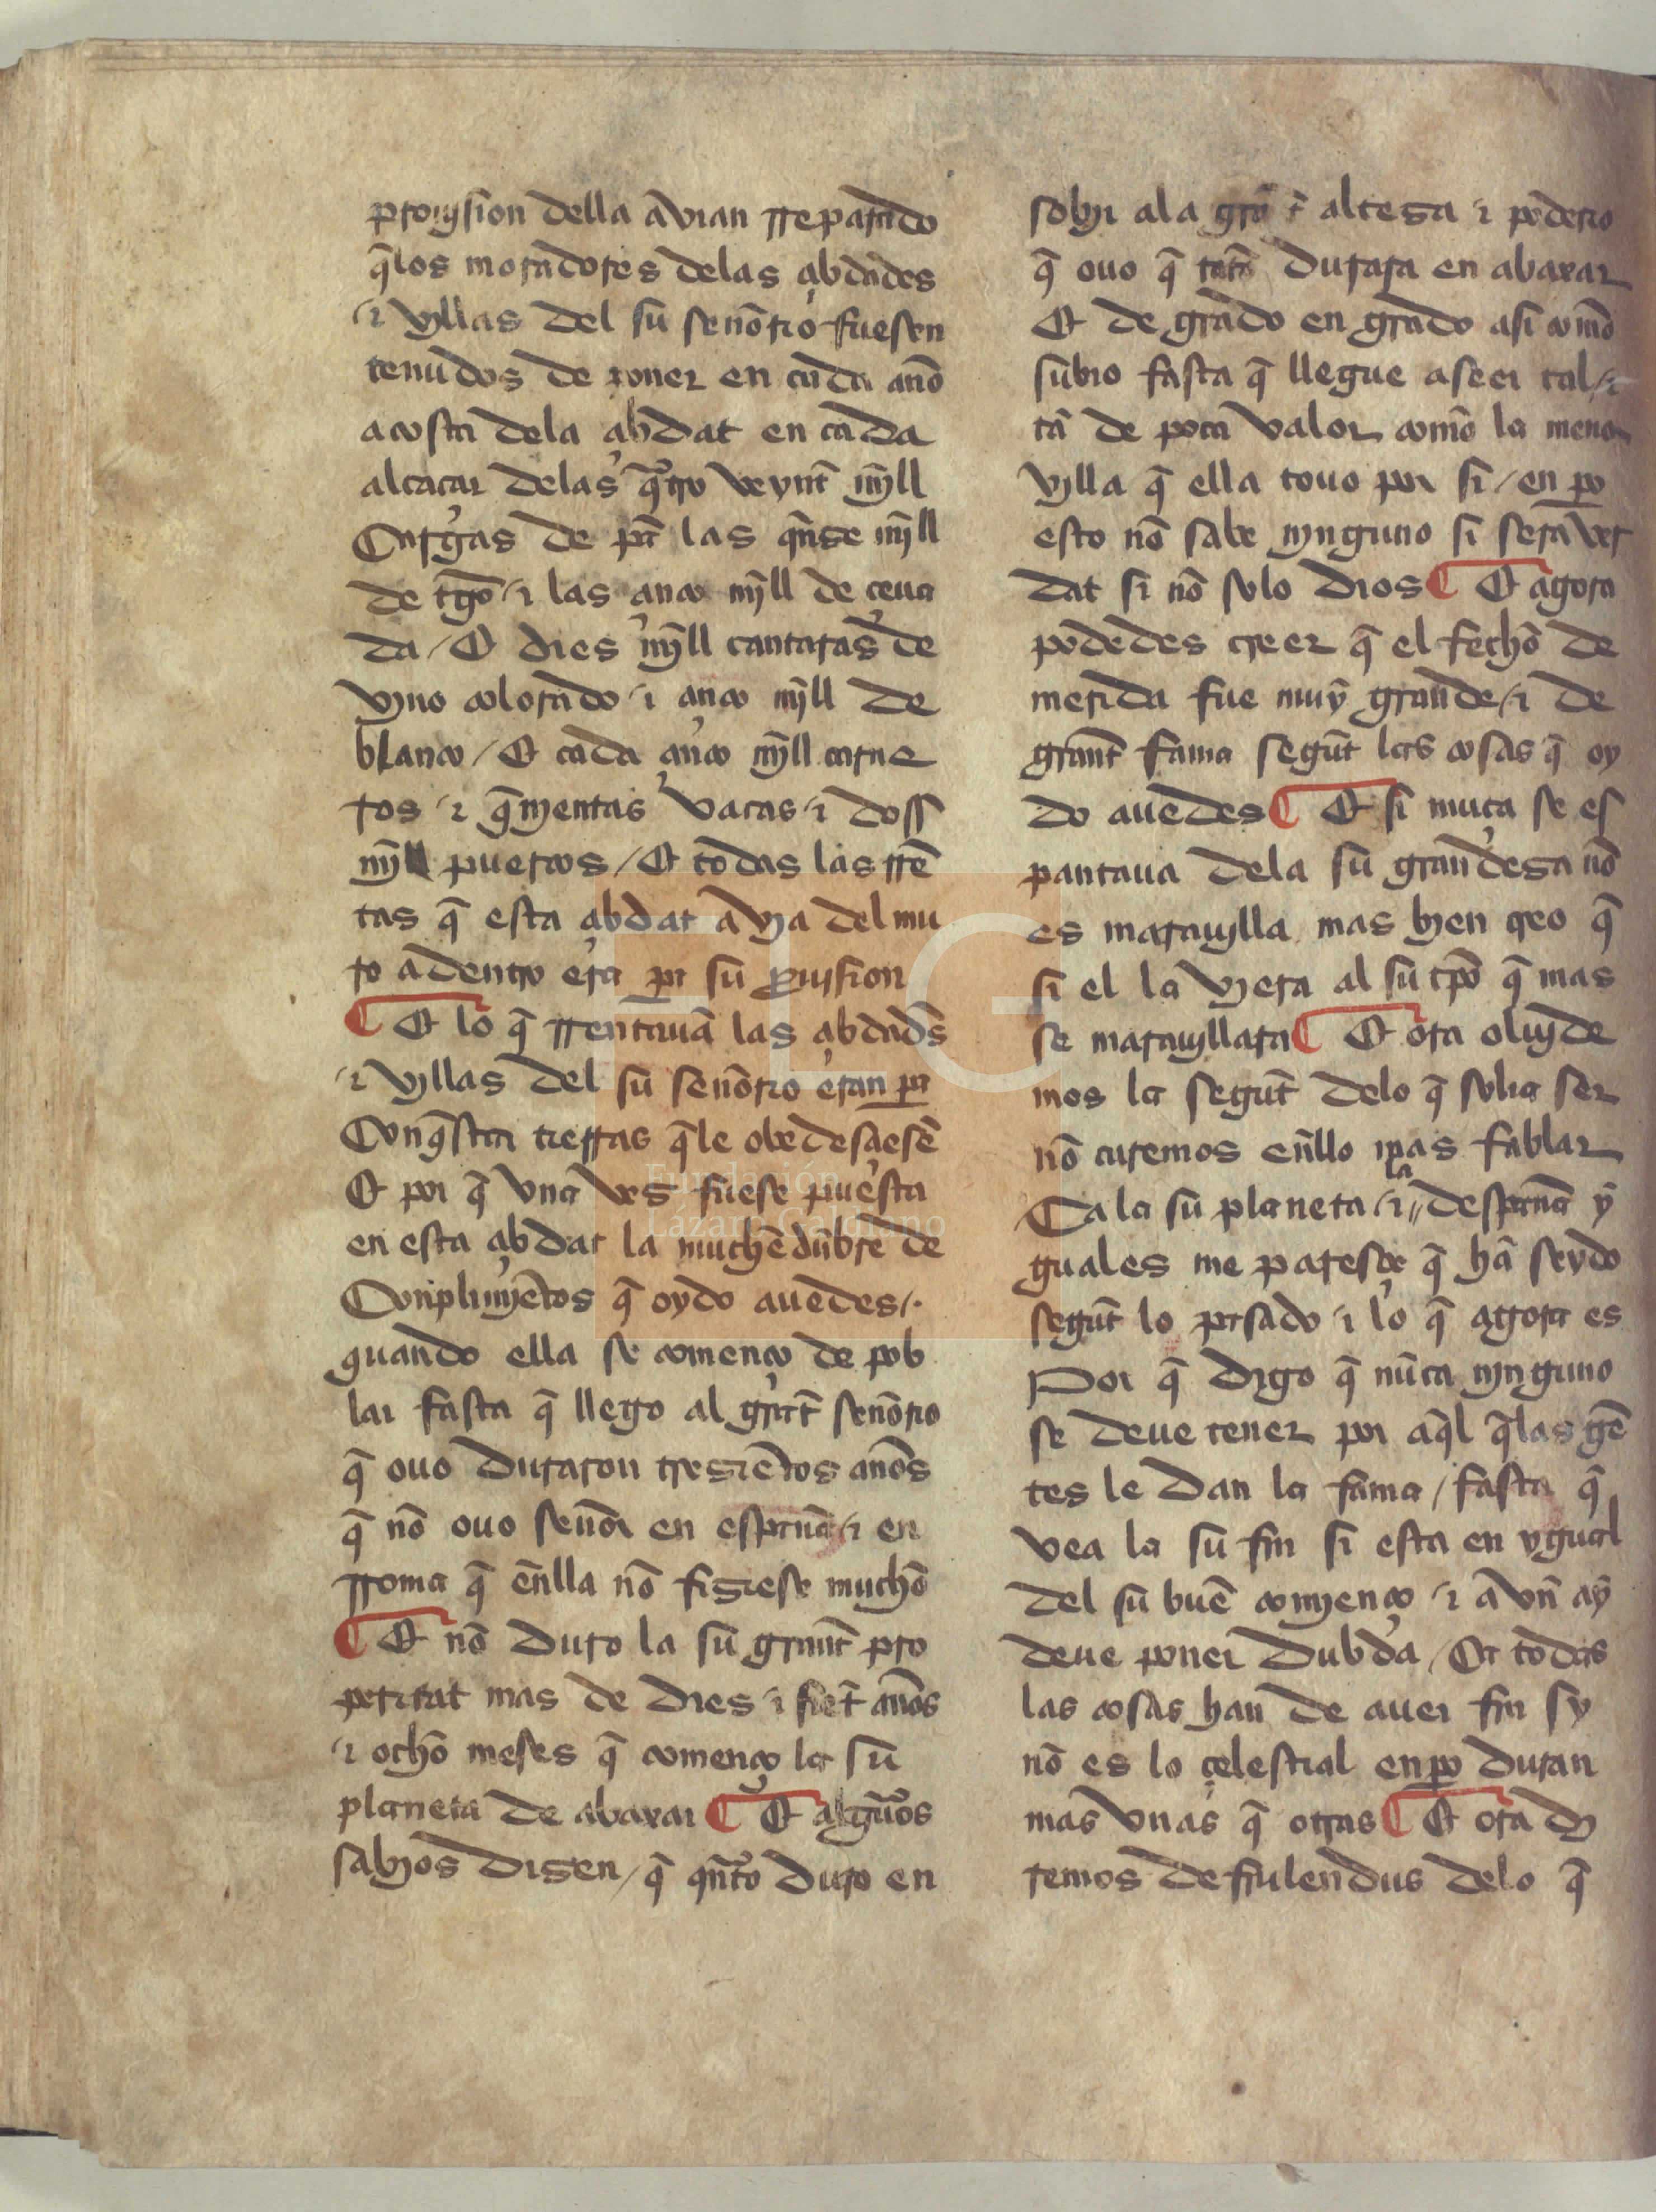 prouysion della avian rreparado
q̃los moradores delas çibdades
⁊ vyllas del su señorio fuesen
tenudos de poner en cada año
acosta dela çibdat en cada
alcaçar delas quatro veynt̃ myll
Cargas de pã las quinse myll
de trigo ⁊ las çinco myll de ceua
da / Et dies myll cantaras de
vyno colorado ⁊ çinco myll de
blanco / Et cada çinco myll carne
ros ⁊ quinyentas vacas ⁊ doss
myll puercos / Et todas las rrẽ
tas q̃ esta çibdat avya del mu
ro adentro era pa su prouision
¶ Et lo q̃ rrentauã las çibdades
⁊ vyllas del su señorio eran pa
Conq̃star tierras q̃le obedesçiesẽ
Et por q̃ vna ves fuese puesta
en esta çibdat la muchẽdũbre de
Conplimyẽtos q̃ oydo auedes /.
quando ella se començo de pob
lar fasta q̃ llego al grant señorio
q̃ ouo duraron tresiẽtos años
q̃ nõ ouo señor en españa ⁊ en
rroma q̃ ẽnlla nõ fisiese mucho
¶ Et nõ duro la su grant pro
peridat mas de dies ⁊ siet̃ años
⁊ ocho meses q̃ començo la su
planeta de abaxar ¶ Et algunos
sabyos disen / q̃ quãto duro en
sobyr ala grã altesa ⁊ poderio
q̃ ouo q̃ tãto durara en abaxar
Et de grado en grado asi como
subio fasta q̃ llegue aseer tal ⁊
tã de poca valor como la menor
vylla q̃ ella touo por si / en pero
esto nõ sabe nynguno si sera ver
dat si nõ solo dios ¶ Et agora
podedes creer q̃ el fecho de
merida fue muy grande ⁊ de
grant fama segũt las cosas q̃ oy
do auedes ¶ Et si muça se es
pantaua dela su grandesa nõ
es marauylla mas byen creo q̃
si el la vyera al su tp̃o q̃ mas
se marauyllara ¶ Et ora oluyde
mos la segũt delo q̃ solia ser
nõ curemos enllo mas fablar
Ca la su planeta ⁊ la de españa y
guales me paresçe q̃ hã seydo
segũt lo pasado ⁊ lo q̃ agora es
Por q̃ digo q̃ nũca nynguno
se deue tener por aq̃l q̃las gẽ
tes le dan la fama / fasta q̃
vea la su fin si esta en ygual
del su buẽ comyenço ⁊ avn ay
deue poner dubda / Ca todas
las cosas han de auer fin sy
nõ es lo çelestial enpero duran
mas vnas q̃ otras ¶ Et ora di
remos de frulendus delo q̃